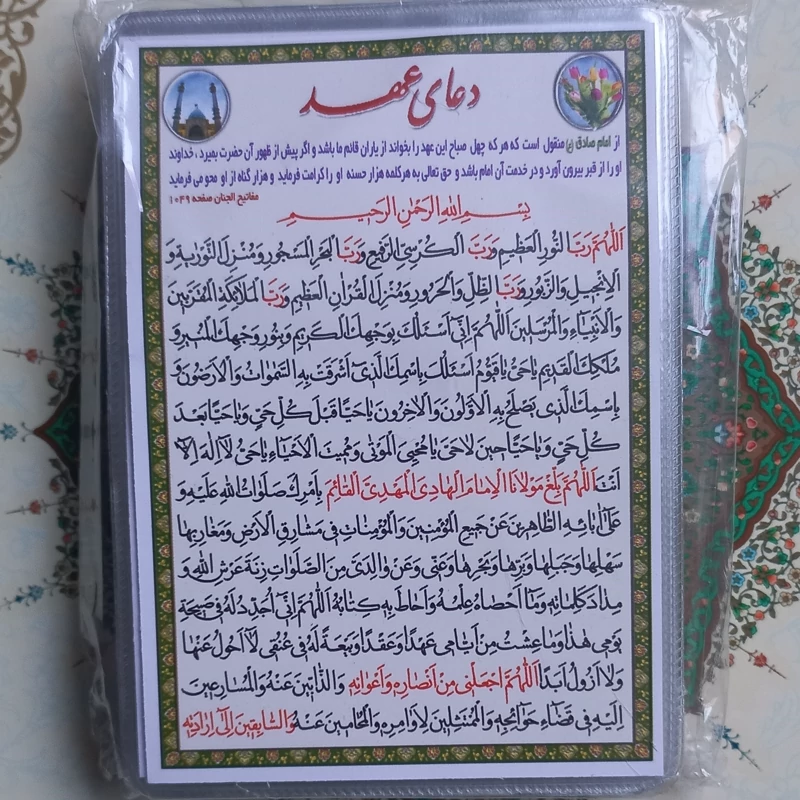 دعای عهد
از امام صادق (ع) منقول است که هر که چهل صباح این عهد را بخواند از یاران قائم ما باشد و اگر پیش از ظهور آن حضرت بمیرد، خداوند
او را از قبر بیرون آورد و در خدمت آن امام باشد و حق تعالی به هر کلمه هزار حسنه او را کرامت فرماید و هزار گناه از او محو می فرماید
مفاتیح الجنان صفحه ۱۰۴۹
بِسْمِ اللهِ الرَّحْمٰنِ الرَّحیمِ
اَللّٰهُمَّ رَبَّ النُّورِ الْعَظیمِ وَ رَبَّ الْكُرْسِیِّ الرَّفیعِ وَ رَبَّ الْبَحْرِ الْمَسْجُورِ وَ مُنْزِلَ التَّوْریٰةِ وَ
الْاِنْجیلِ وَ الزَّبُورِ وَ رَبَّ الظِّلِّ وَ الْحَرُورِ وَ مُنْزِلَ الْقُرْاٰنِ الْعَظیمِ وَ رَبَّ الْمَلاٰئِكَةِ الْمُقَرَّبینَ
وَ الْاَنْبِیاٰءِ وَ الْمُرْسَلینَ اَللّٰهُمَّ اِنّی اَسْئَلُكَ بِوَجْهِكَ الْكَریمِ وَ بِنُورِ وَجْهِكَ الْمُنیرِ وَ
مُلْكِكَ الْقَدیمِ یٰا حَیُّ یٰا قَیُّومُ اَسْئَلُكَ بِاسْمِكَ الَّذی اَشْرَقَتْ بِهِ السَّمٰوٰاتُ وَ الْاَرَضُونَ وَ
بِاسْمِكَ الَّذی یَصْلَحُ بِهِ الْاَوَّلُونَ وَ الْاٰخِرُونَ یٰا حَیًّا قَبْلَ كُلِّ حَیٍّ وَ یٰا حَیًّا بَعْدَ
كُلِّ حَیٍّ وَ یٰا حَیًّا حینَ لاٰ حَیَّ یٰا مُحْیِیَ الْمَوْتیٰ وَ مُمیتَ الْاَحْیٰاءِ یٰا حَیُّ لاٰ اِلٰهَ اِلاّٰ
اَنْتَ اَللّٰهُمَّ بَلِّغْ مَوْلاٰنَا الْاِمٰامَ الْهٰادِیَ الْمَهْدِیَّ الْقٰائِمَ بِاَمْرِكَ صَلَوٰاتُ اللهِ عَلَیْهِ وَ
عَلیٰ اٰبٰائِهِ الطّٰاهِرینَ عَنْ جَمیعِ الْمُؤْمِنینَ وَ الْمُؤْمِنٰاتِ فی مَشٰارِقِ الْاَرْضِ وَ مَغٰارِبِهٰا
سَهْلِهٰا وَ جَبَلِهٰا وَ بَرِّهٰا وَ بَحْرِهٰا وَ عَنّی وَ عَنْ وٰالِدَیَّ مِنَ الصَّلَوٰاتِ زِنَةَ عَرْشِ اللهِ وَ
مِدٰادَ كَلِمٰاتِهِ وَ مٰا اَحْصٰاهُ عِلْمُهُ وَ اَحٰاطَ بِهِ كِتٰابُهُ اَللّٰهُمَّ اِنّی اُجَدِّدُ لَهُ فی صَبیحَةِ
یَوْمی هٰذٰا وَ مٰا عِشْتُ مِنْ اَیّٰامی عَهْدًا وَ عَقْدًا وَ بَیْعَةً لَهُ فی عُنُقی لاٰ اَحُولُ عَنْهٰا
وَ لاٰ اَزُولُ اَبَدًا اَللّٰهُمَّ اجْعَلْنی مِنْ اَنْصٰارِهِ وَ اَعْوٰانِهِ وَ الذّٰابّینَ عَنْهُ وَ الْمُسٰارِعینَ
اِلَیْهِ فی قَضٰاءِ حَوٰائِجِهِ وَ الْمُمْتَثِلینَ لِاَوٰامِرِهِ وَ الْمُحٰامینَ عَنْهُ وَ السّٰابِقینَ اِلیٰ اِرٰادَتِهِ